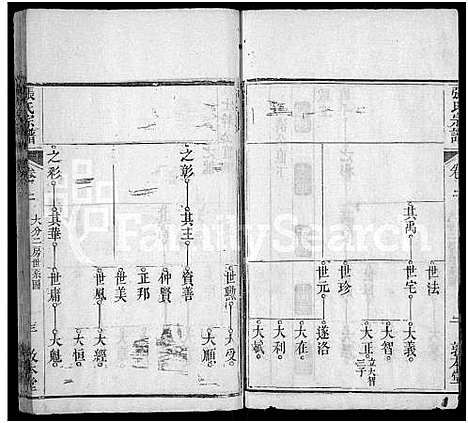 張氏宗譜
卷十一
敦本堂
其禹
世法
世宅
世珍
世元
大義
大智
大正 立大智三子
遂洛
大在
大利
大斌
之彰
其主
資善
仲賢
正邦
世美
世風
世勲
大受
大順
大經
大恒
之彩
其華
世庸
大魁
張氏宗譜
大分二房世系圖
三
敦本堂
FamilySearch